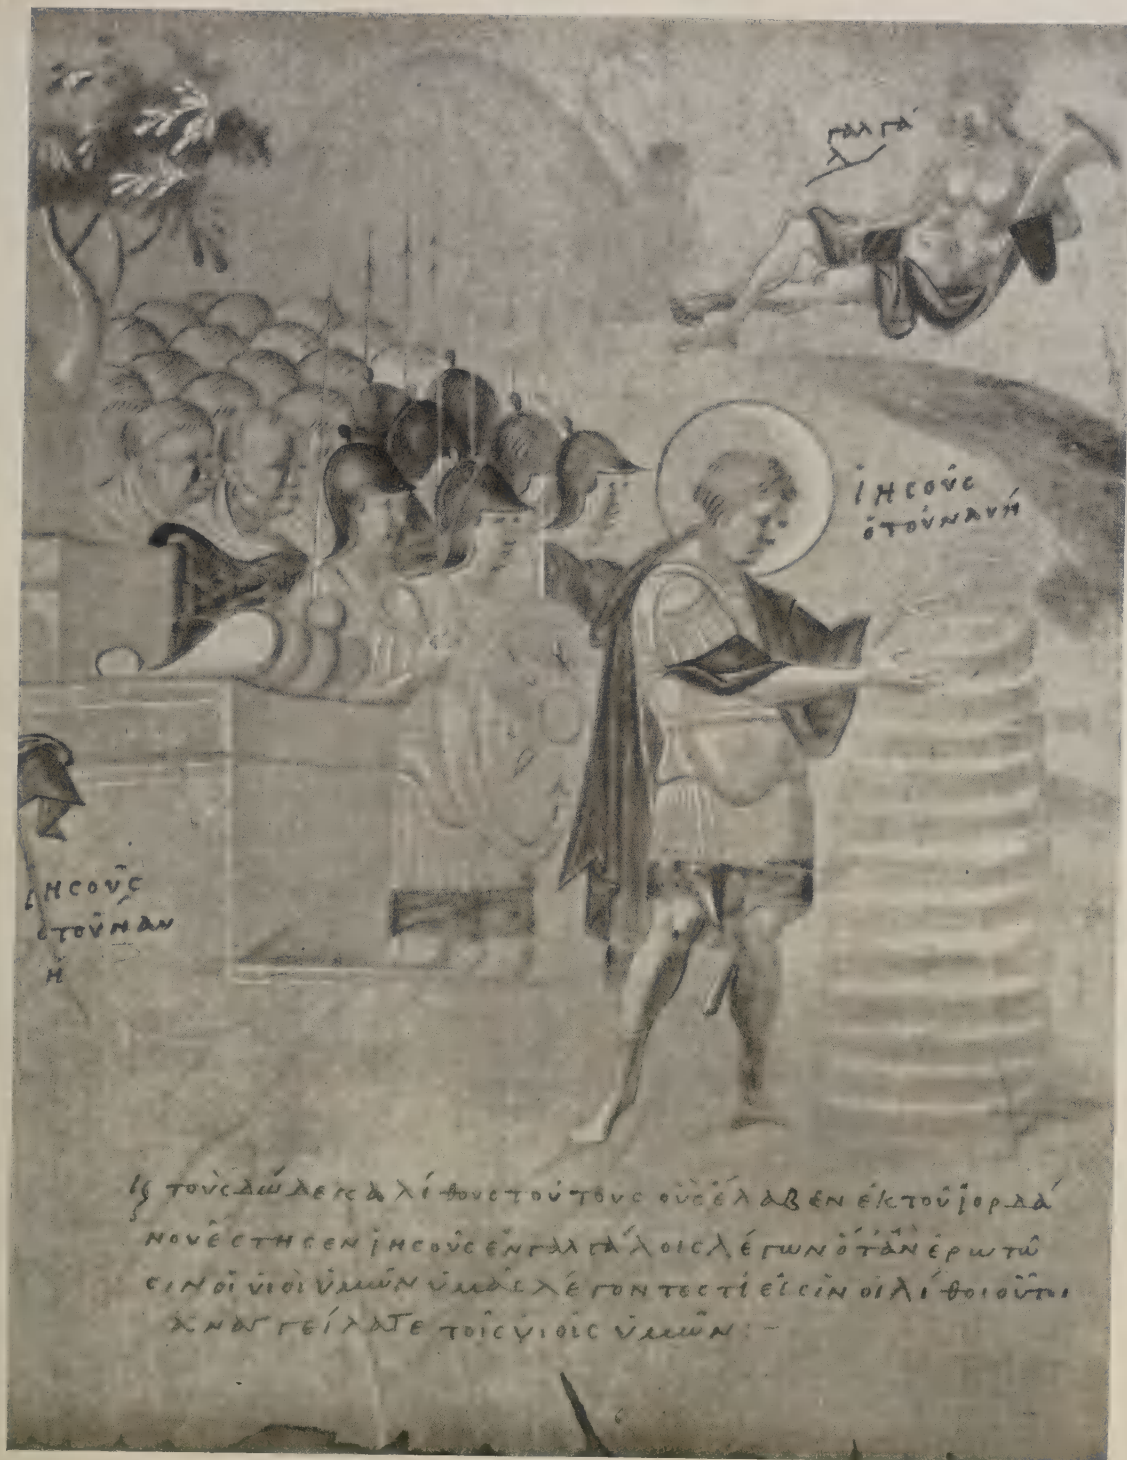 γαλγά
λ
ἰησοῦς
ὁ τοῦ ναυή
ἰησοῦς
ὁ τοῦ ναυ
ή
τοὺς δώδεκα λίθους τούτους οὓς ἔλαβεν ἐκ τοῦ ϊορδά
νου ἔστησεν ϊησοῦς ἐν γαλγάλοις λέγων ὅταν ἐρωτῶ
σιν οἱ υἱοὶ ὑμῶν ὑμᾶς λέγοντες τί εἰσὶν οἱ λίθοι οὗτοι
ἀναγγείλατε τοῖς υἱοῖς ὑμῶν :-